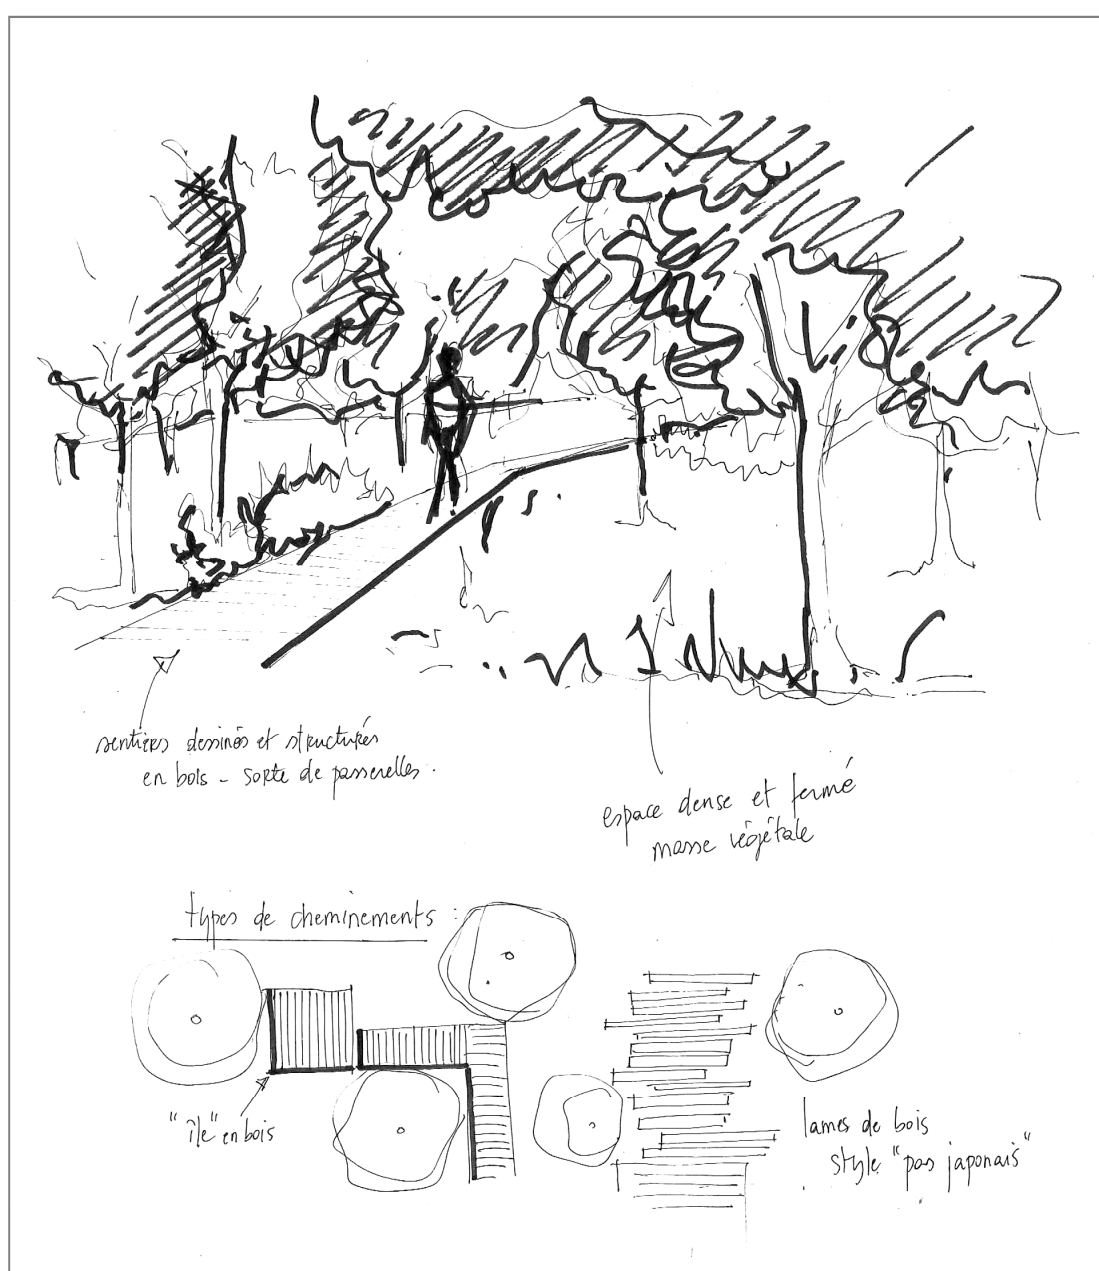 sentiers dessinés et structurés
en bois - sorte de passerelles.
espace dense et fermé
masse végétale
types de cheminements :
"île" en bois
lames de bois
style "pas japonais"